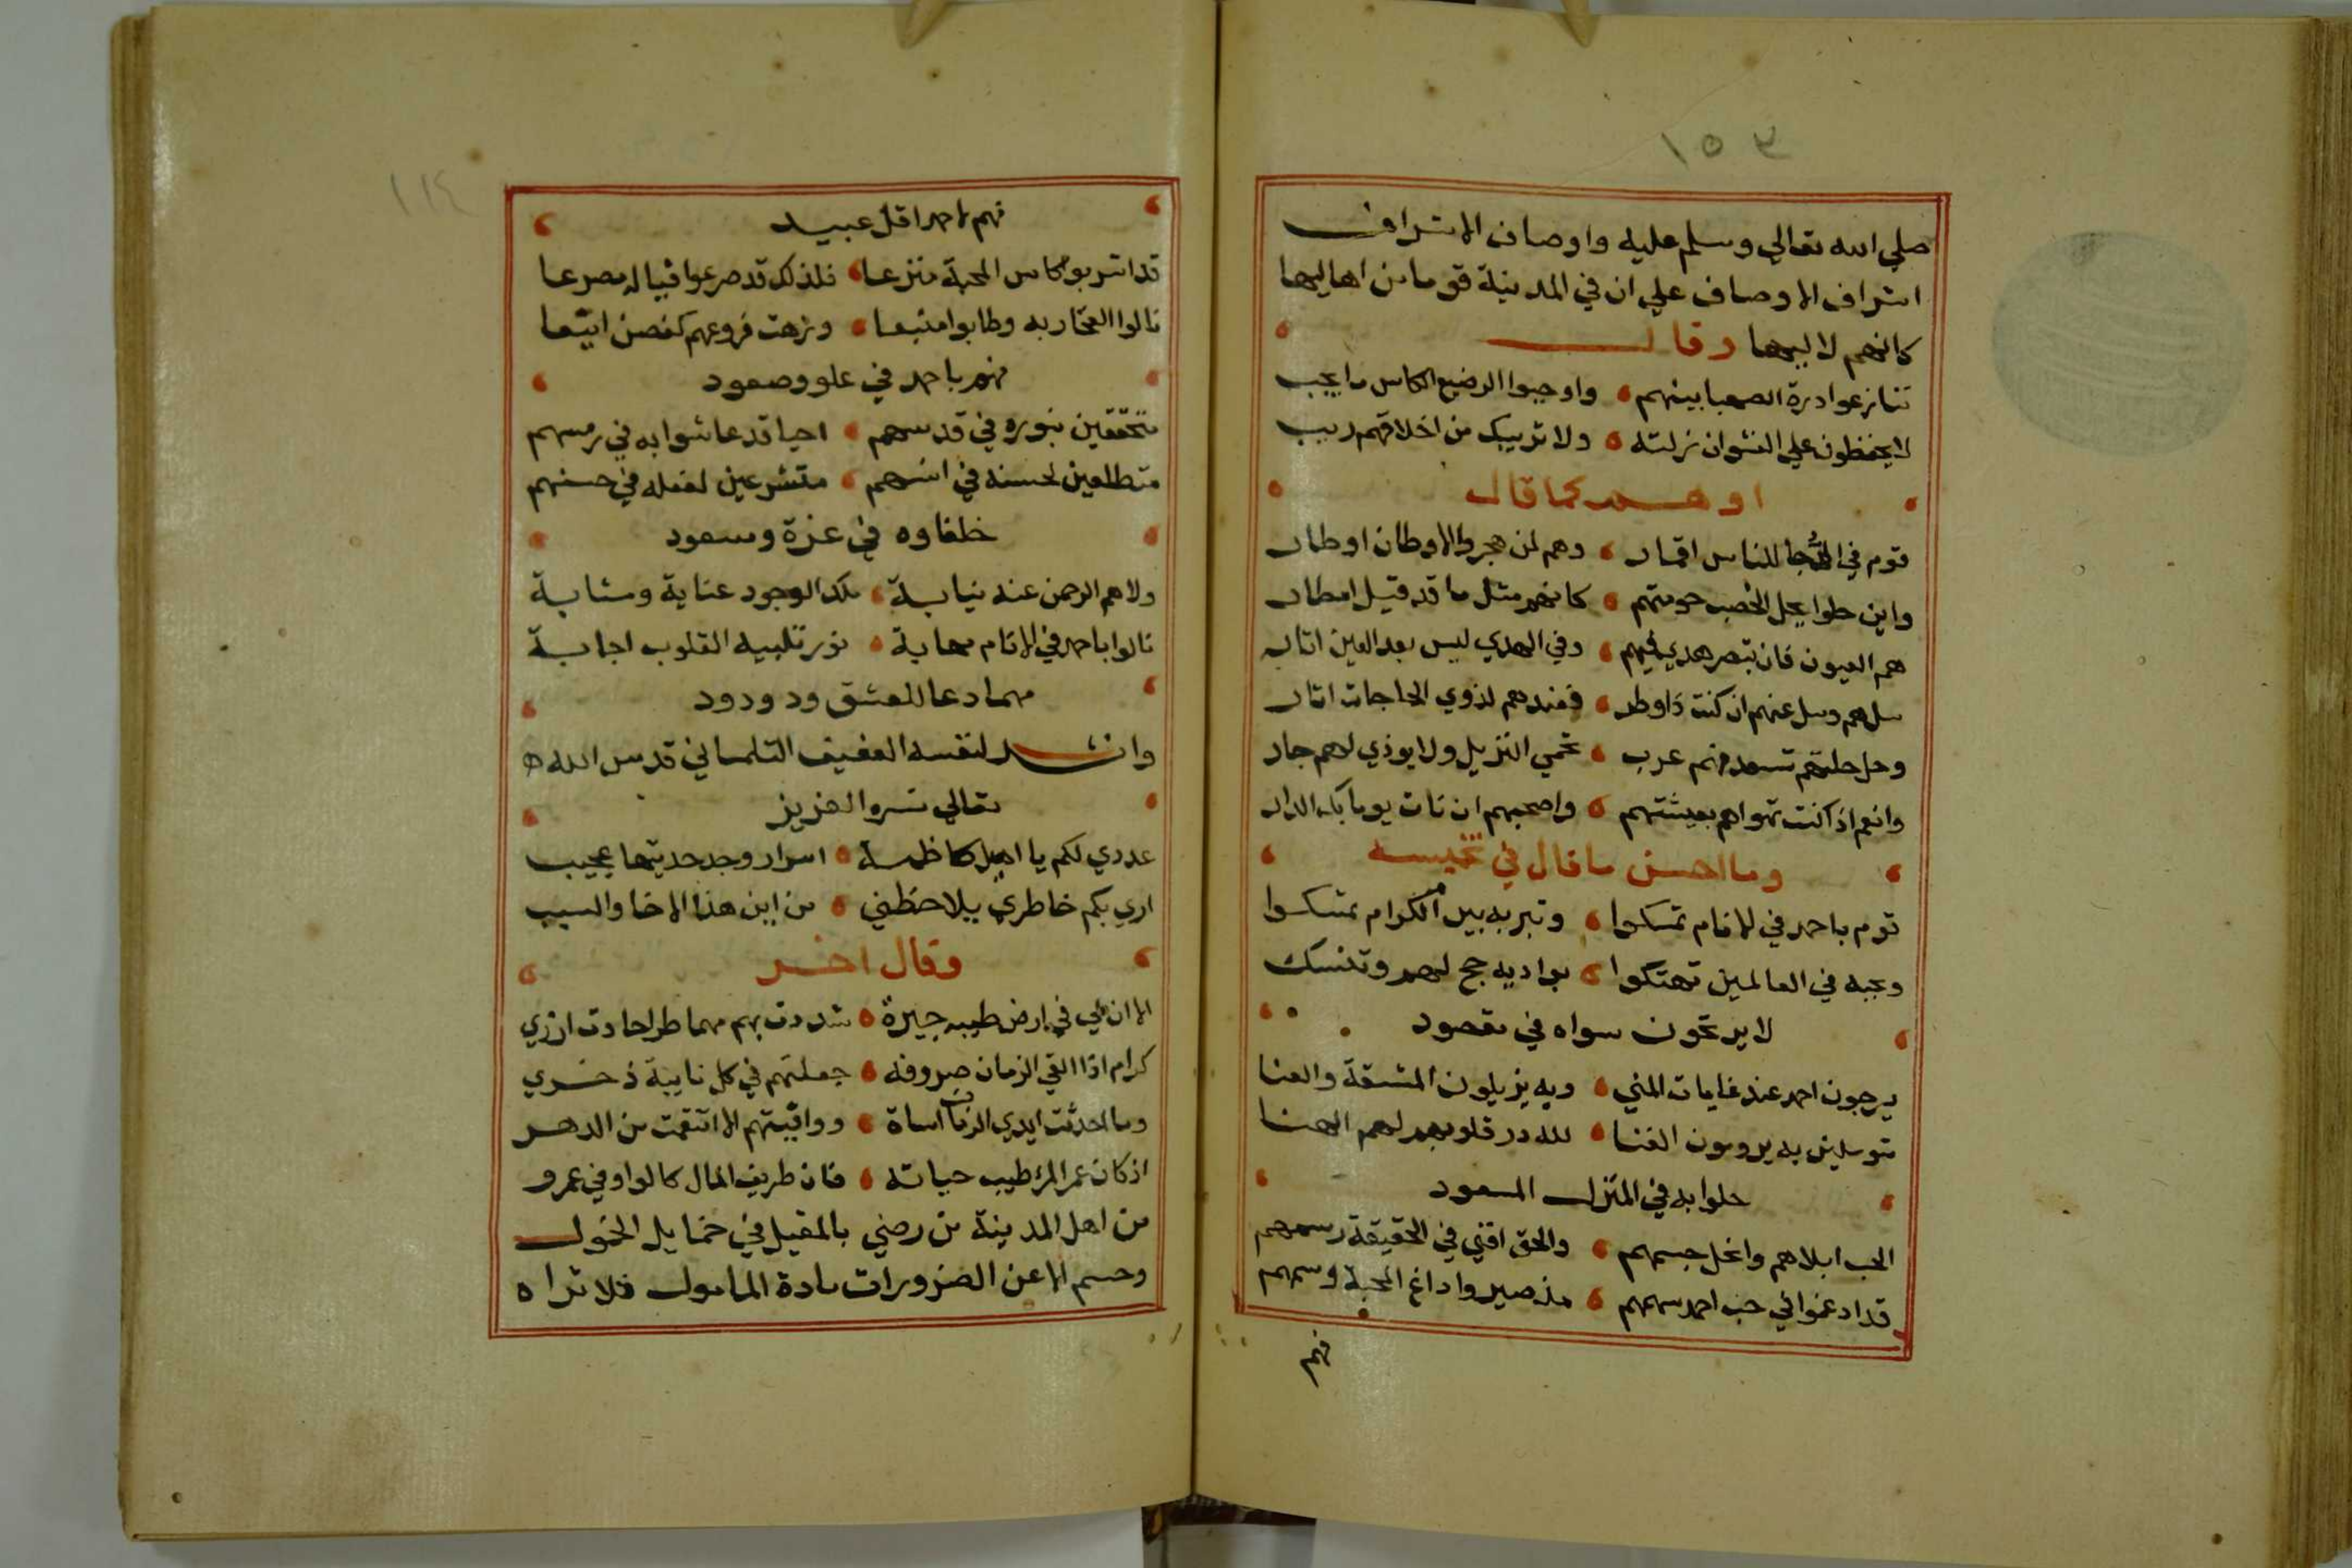 ١٥٣
صلي الله تعالي وسلم عليه واوصاف الاشراف
اشراف الاوصاف علي ان في المدينة قوما من اهاليها
كانهم لاليها وقال
تنازعوا درة الصهبا بينهم واوجبوا الرضيع الكاس ما يجب
لا يحفظون علي النشوان زلته ولا تريبك من اخلاقهم ريب
او هم كما قال
قوم في الدُّجا للناس اقمار وهم لمن هجر والاوطان اوطار
واين حلوا يحل الخصب حومتهم كانهم مثل ما قد قيل امطار
هم العيون فان تبصر هدي فبهم وفي الهدي ليس بعد العين اثار
سلهم وسل عنهم ان كنت ذاوطر فعندهم لذوي الحاجات اثار
وحل حلتهم تسعد فهم عرب تحمي النزيل ولا يوذي لهم جار
وانعم اذ كنت تهواهم بعيشتهم واصحبهم ان نات يوما بك الدار
وما احسن ما قال في تخميسه
قوم باحمد في الانام تمسكوا وتبر به بين الكرام تمسكوا
وبحبه في العالمين تهتكوا بواديه حج لهم وتنسك
لا يرتجون سواه في مقصود
يرجون احمد عند غايات المني وبه يزيلون المشقة والعنا
متوسلين به يرومون الغنا لله در قلوبهم لهم الهنا
حلوا به في المنزل المسعود
الحب ابلاهم وانحل جسمهم والحق افني في الحقيقة رسمهم
قد ادغموا في حب احمد سهمهم مذ صيروا داغ المحبة وسمهم
فهم
١١٤
فهم باحمد اقل عبيد
قد اشربوا كاس المحبة منزعا فلذلك قد صرعوا فياله مصرعا
نالوا الفخار به وطابوا منبعا وزهت فروعهم كغصن اينعا
فهم باحمد في علو وصعود
متحققين بنوره في قدسهم احيا قد عاشوا به في رمسهم
متطلعين لحسنه في انسهم متشرعين لفعله في حسنهم
خلفاوه في عزة وسعود
ولاهم الرحمن عنه نيابة ملك الوجود عناية ومثابة
نالوا باحمد في الانام مهابة نور تلبيه القلوب اجابة
مهما دعا للعشق ود ودود
وانشد لنفسه العفيف التلمساني قدس الله
تعالي سره العزيز
عددي لكم يا اهيل كاظمة اسرار وجد حديثها عجيب
اري بكم خاطري يلاحظني من اين هذا الاخا والسبب
وقال اخر
الا ان لي في ارض طيبه جيرة شددت بهم مهما طرا حادث ازري
كرام اذا القي الزمان صروفه جعلتهم في كل نايبة ذخري
وما احدثت ايدي الزمان اساة ووافيتهم الا انتقمت من الدهر
اذ كان عمر المرء طيب حياته فان طريف المال كالواو في عمرو
من اهل المدينة من رضي بالمقيل في خمايل الخمول
وحسم الاعن الضرورات مادة المامول فلا تراه